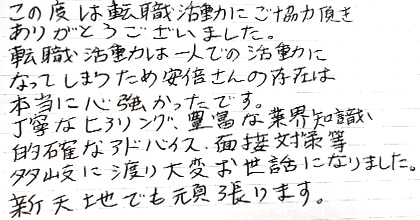 この度は転職活動にご協力頂き
ありがとうございました。
転職活動は一人での活動に
なってしまうため安倍さんの存在は
本当に心強かったです。
丁寧なヒアリング、豊富な業界知識、
的確なアドバイス、面接対策等
多岐に渡り大変お世話になりました。
新天地でも頑張ります。